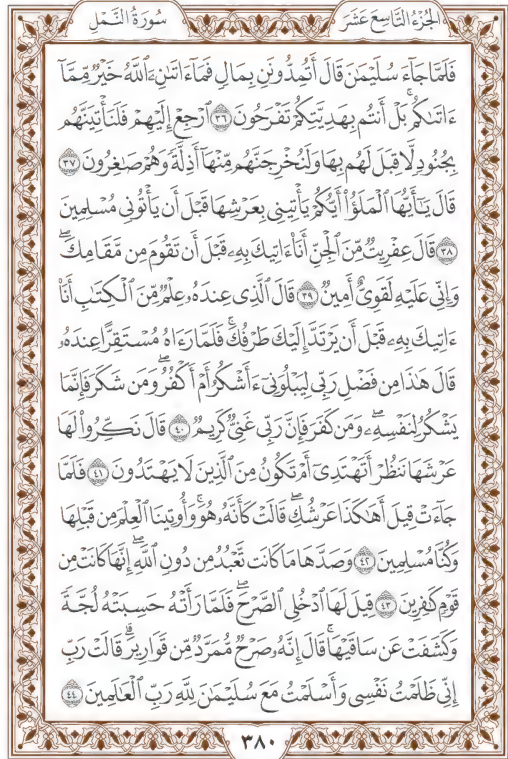 الجزء التاسع عشر
سورة النمل
فَلَمَّا جَآءَ سُلَيْمَٰنَ قَالَ أَتُمِدُّونَنِ بِمَالٍ فَمَآ ءَاتَىٰنِۦَ ٱللَّهُ خَيْرٌ مِّمَّآ
ءَاتَىٰكُم ۚ بَلْ أَنتُم بِهَدِيَّتِكُمْ تَفْرَحُونَ ٣٦ ٱرْجِعْ إِلَيْهِمْ فَلَنَأْتِيَنَّهُم
بِجُنُودٍ لَّا قِبَلَ لَهُم بِهَا وَلَنُخْرِجَنَّهُم مِّنْهَآ أَذِلَّةً وَهُمْ صَٰغِرُونَ ٣٧
قَالَ يَٰٓأَيُّهَا ٱلْمَلَؤُا۟ أَيُّكُمْ يَأْتِينِى بِعَرْشِهَا قَبْلَ أَن يَأْتُونِى مُسْلِمِينَ
٣٨ قَالَ عِفْرِيتٌ مِّنَ ٱلْجِنِّ أَنَا۠ ءَاتِيكَ بِهِۦ قَبْلَ أَن تَقُومَ مِن مَّقَامِكَ ۖ
وَإِنِّى عَلَيْهِ لَقَوِىٌّ أَمِينٌ ٣٩ قَالَ ٱلَّذِى عِندَهُۥ عِلْمٌ مِّنَ ٱلْكِتَٰبِ أَنَا۠
ءَاتِيكَ بِهِۦ قَبْلَ أَن يَرْتَدَّ إِلَيْكَ طَرْفُكَ ۚ فَلَمَّا رَءَاهُ مُسْتَقِرًّا عِندَهُۥ
قَالَ هَٰذَا مِن فَضْلِ رَبِّى لِيَبْلُوَنِىٓ ءَأَشْكُرُ أَمْ أَكْفُرُ ۖ وَمَن شَكَرَ فَإِنَّمَا
يَشْكُرُ لِنَفْسِهِۦ ۖ وَمَن كَفَرَ فَإِنَّ رَبِّى غَنِىٌّ كَرِيمٌ ٤٠ قَالَ نَكِّرُوا۟ لَهَا
عَرْشَهَا نَنظُرْ أَتَهْتَدِىٓ أَمْ تَكُونُ مِنَ ٱلَّذِينَ لَا يَهْتَدُونَ ٤١ فَلَمَّا
جَآءَتْ قِيلَ أَهَٰكَذَا عَرْشُكِ ۖ قَالَتْ كَأَنَّهُۥ هُوَ ۚ وَأُوتِينَا ٱلْعِلْمَ مِن قَبْلِهَا
وَكُنَّا مُسْلِمِينَ ٤٢ وَصَدَّهَا مَا كَانَت تَّعْبُدُ مِن دُونِ ٱللَّهِ ۖ إِنَّهَا كَانَتْ مِن
قَوْمٍ كَٰفِرِينَ ٤٣ قِيلَ لَهَا ٱدْخُلِى ٱلصَّرْحَ ۖ فَلَمَّا رَأَتْهُ حَسِبَتْهُ لُجَّةً
وَكَشَفَتْ عَن سَاقَيْهَا ۚ قَالَ إِنَّهُۥ صَرْحٌ مُّمَرَّدٌ مِّن قَوَارِيرَ ۗ قَالَتْ رَبِّ
إِنِّى ظَلَمْتُ نَفْسِى وَأَسْلَمْتُ مَعَ سُلَيْمَٰنَ لِلَّهِ رَبِّ ٱلْعَٰلَمِينَ ٤٤
٣٨٠